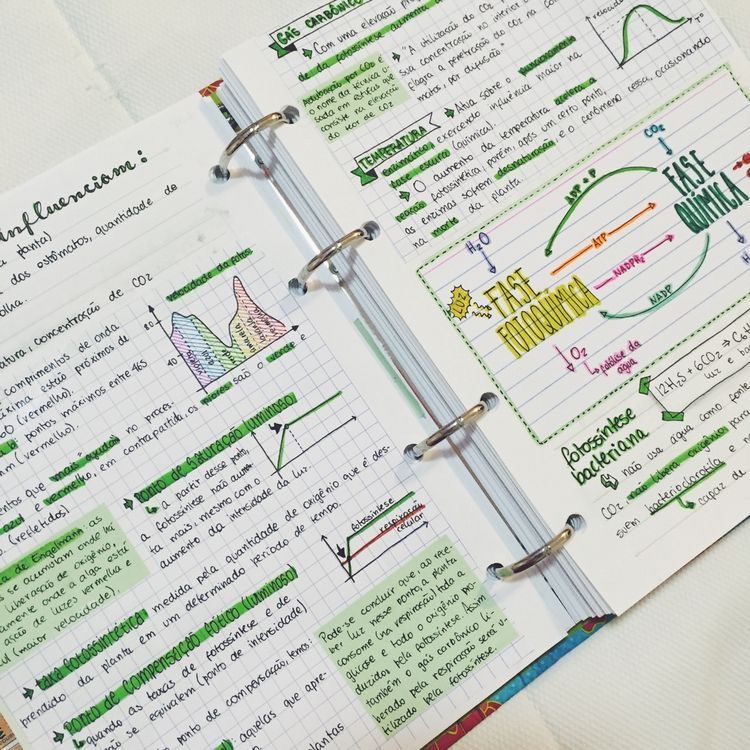 influenciam:
planta)
dos estômatos, quantidade de
olha.
atura, concentração de CO2
comprimentos de onda
áxima estão próximos de
(vermelho).
pontos máximos entre 465
nm (vermelho).
mais usados no proces-
azul e vermelho, em contrapartida, os piores são o verde e
(refletidos)
velocidade da fotos.
80
40
de Engelmann: as
se acumulam onde há
liberação de oxigênio,
amente onde a alga está
ação de luzes vermelha e
ul (maior velocidade).
Ponto de saturação luminoso:
a partir desse ponto,
a fotossíntese não aumen-
ta mais, mesmo com o
aumento da intensidade da luz.
taxa fotossintética: medida pela quantidade de oxigênio que é des-
prendido da planta em um determinado período de tempo.
fotossíntese
respiração
celular
Ponto de compensação fótico (luminoso)
quando as taxas de fotossíntese e de
ção se equivalem (ponto de intensidade)
ponto de compensação, temos:
aquelas que apre-
plantas
Pode-se concluir que, ao rece-
ber luz nesse ponto, a planta
consome (na respiração) toda a
glicose e todo o oxigênio pro-
duzidos pela fotossíntese. Assim
também o gás carbônico li-
berado pela respiração será u-
tilizado pela fotossíntese.
GÁS CARBÔNICO
Com uma elevação
de da fotossíntese aumenta
Adubação por CO2 é
o nome da técnica u-
sada em estufas que
consiste na elevação
do teor de CO2
"A utilização do CO2
sua concentração no interior
flagra a penetração do CO2 na
matos, por difusão."
velocidade
Tº
TEMPERATURA
Atua sobre o funcionamento
enzimático, exercendo influência maior na
fase escura (química).
O aumento da temperatura acelera a
reação fotossintética, porém, após um certo ponto,
as enzimas sofrem desnaturação, e o fenômeno cessa, ocasionando
na morte da planta.
CO2
ADP + P
FASE
QUÍMICA
H2O
ATP
NADPH2
NADP
LUZ
FASE
FOTOQUÍMICA
O2
fotólise da
água
fotossíntese
bacteriana
12H2S + 6CO2
luz e
não usa água como fonte
CO2, não libera oxigênio
suem bacterioclorofila e
capaz de